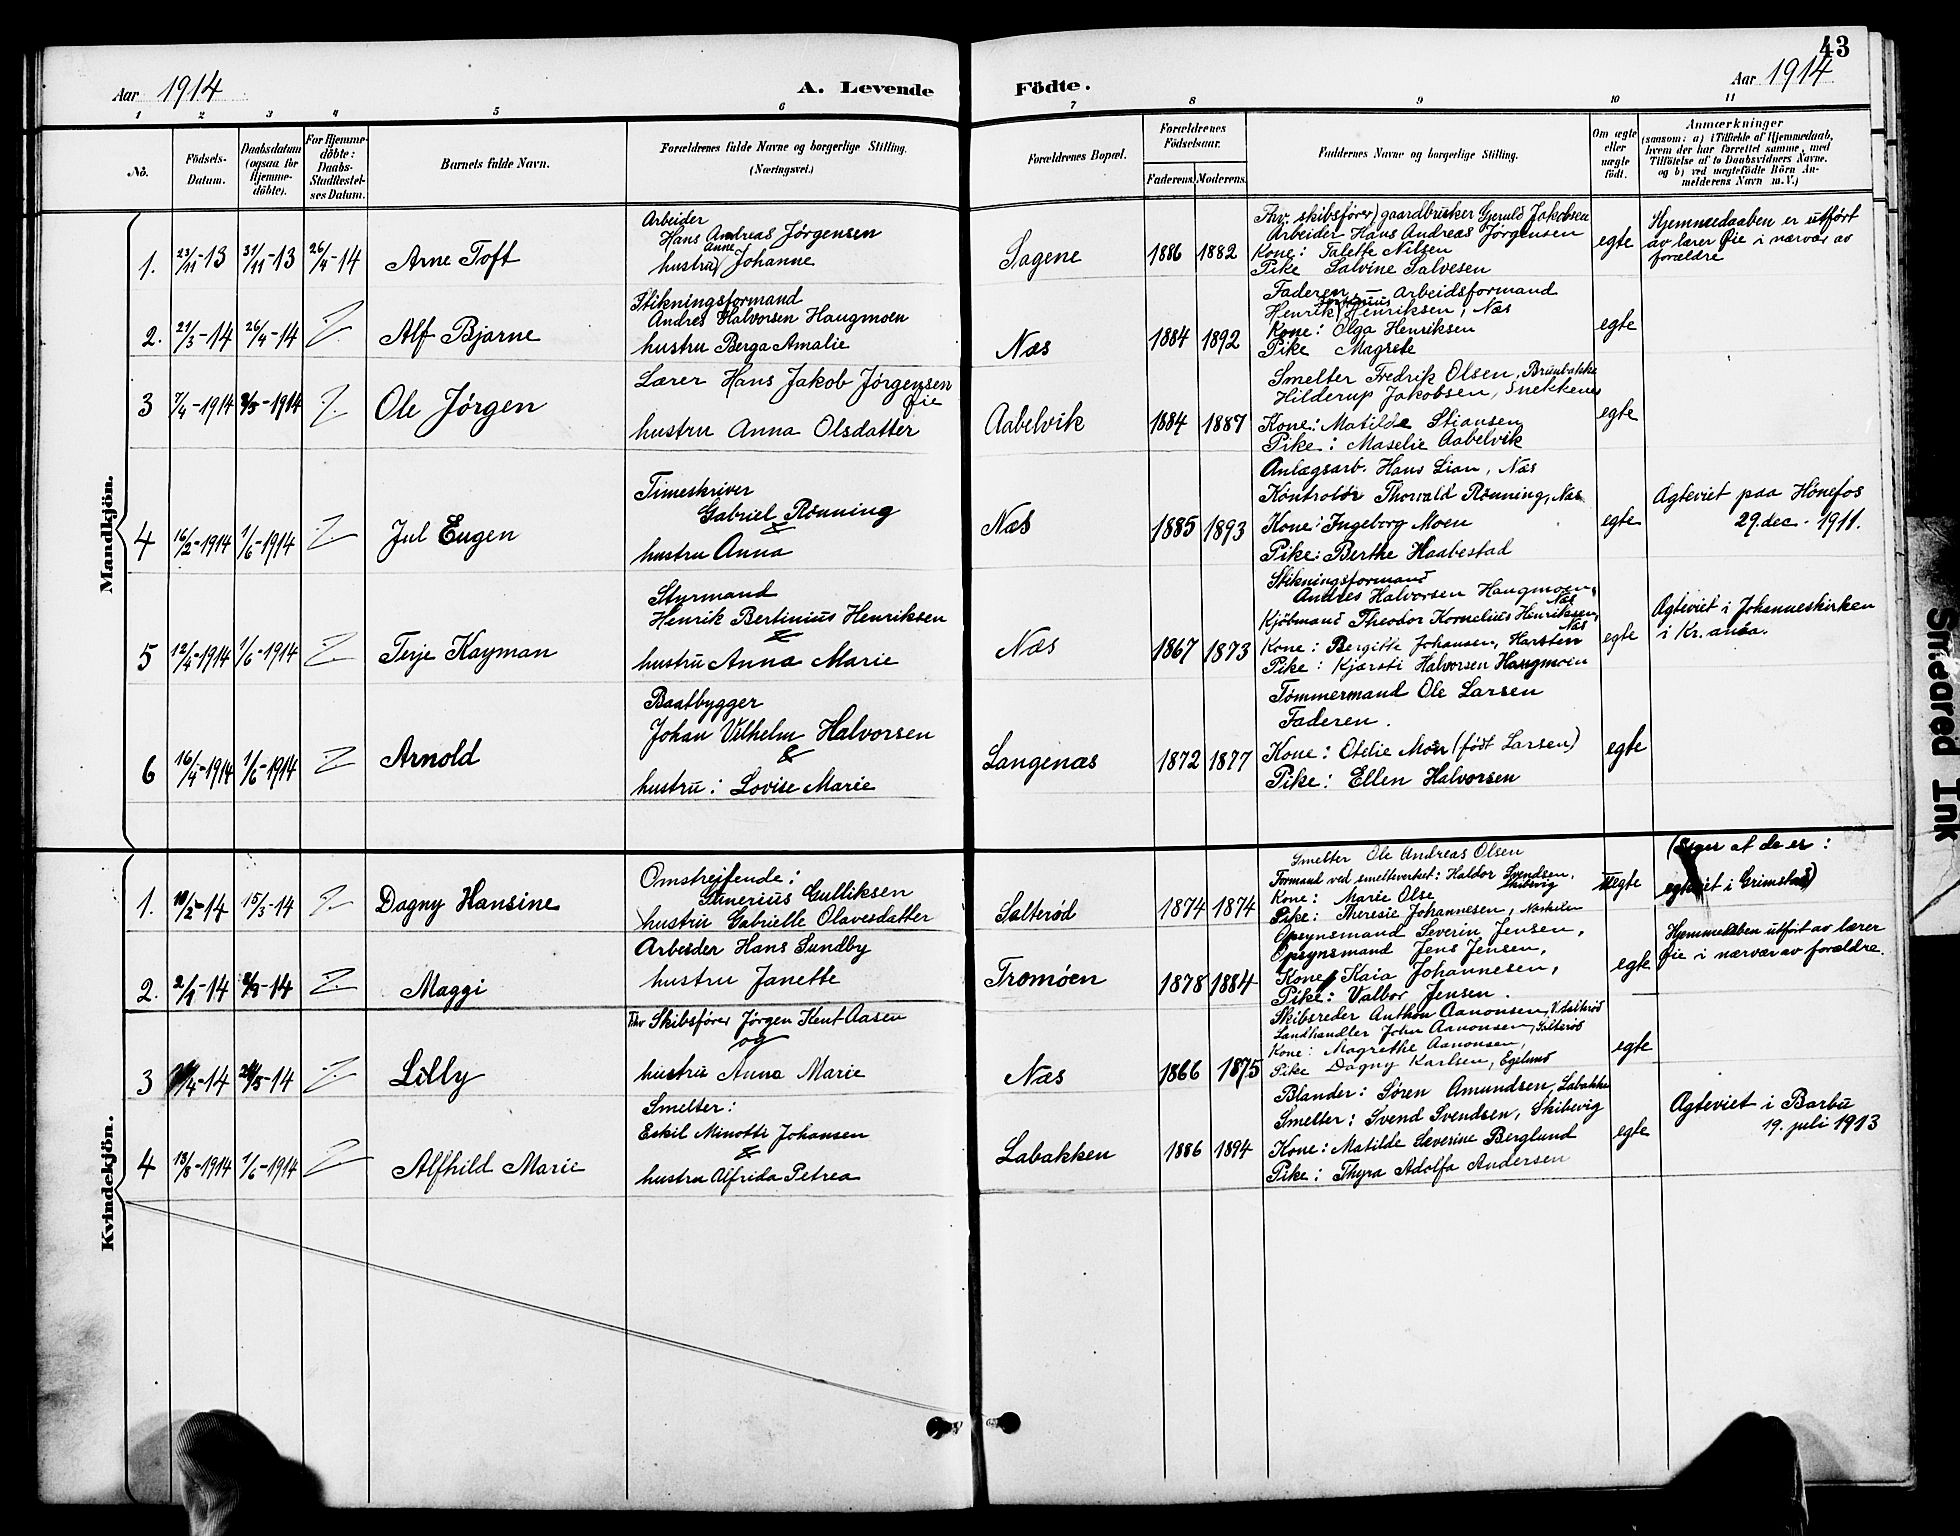 43
Aar 1914
A. Levende
Födte.
Aar 1914
1 2 3 4 5 6 7 8 9 10 11
No.
Födsels-Datum.
Daabsdatum (ogsaa for Hjemmedöbte).
For Hjemmedöbte: Daabs-Stadfestelses Datum.
Barnets fulde Navn.
Forældrenes fulde Navne og borgerlige Stilling.
(Næringsvei.)
Forældrenes Bopæl.
Forældrenes Födselsaar.
Faderens. Moderens.
Faddernes Navne og borgerlige Stilling.
Om ægte eller uægte födt.
Anmærkninger
(saasom: a) i Tilfælde af Hjemmedaab,
hvem der har forrettet samme, med
Tilföielse af to Daabsvidners Navne.
og b) ved uægtefödte Börn An-
melderens Navn m. V.)
Mandkjön.
1. 23/11-13 31/11-13 26/4-14 Arne Toft
Arbeider
Hans Andreas Jørgensen
hustru Anne Johanne
Sagene 1886 1882
Fhv. skibsfører gaardbruker Gjeruld Jakobsen
Arbeider Hans Andreas Jørgensen
Kone: Talette Nilsen
Pike Salvine Salvesen
egte
Hjemmedaaben er utført
av lærer Øie i nærvær av
forældre
2. 21/3-14 26/4-14 Alf Bjarne
Stikningsformand
Andres Halvorsen Haugmoen
hustru Berga Amalie
Næs 1884 1892
Faderen - Arbeidsformand
Henrik Henriksen, Næs
Kone: Olga Henriksen
Pike Magrete
egte
3 7/4-1914 3/5-1914 Ole Jørgen
Lærer Hans Jakob Jørgensen
Øie
hustru Anna Olsdatter
Aabelvik 1884 1887
Smelter Fredrik Olsen, Brunbakke
Hilderup Jakobsen, Snekkenes
Kone: Matilde Stiansen
Pike: Maselie Aabelvik
egte
4 16/2-1914 1/6-1914 Jul Eugen
Timeskriver
Gabriel Rønning
&
hustru Anna
Næs 1885 1893
Anlægsarb. Hans Lian, Næs
Kontrolør Thorvald Rønning, Næs
Kone: Ingeborg Moen
Pike: Berthe Haabestad
egte
Ægteviet paa Hønefos
29. dec. 1911.
5 12/4-1914 1/6-1914 Terje Kayman
Styrmand
Henrik Bertinius Henriksen
&
hustru Anna Marie
Næs 1867 1873
Stikningsformand
Andres Halvorsen Haugmoen,
Næs
Kjøbmand Theodor Kornelius Henriksen,
Næs
Kone: Bergitte Johansen, Harsten
Pike: Kjærsti Halvorsen Haugmoen
egte
Ægteviet i Johanneskirken
i Kr. ania.
6 16/4-1914 1/6-1914 Arnold
Baatbygger
Johan Vilhelm Halvorsen
&
hustru: Lovise Marie
Langenæs 1872 1877
Tømmermand Ole Larsen
Faderen.
Kone: Otelie Moen (født Larsen)
Pike: Ellen Halvorsen
egte
Kvindekjön.
1. 10/2-14 15/3-14 Dagny Hansine
Omstreifende:
Gunerius Gulliksen
hustru Gabrielle Olavesdatter
Salterød 1874 1874
Smelter Ole Andreas Olsen
Formand ved smelteverket: Haldor Svendsen,
Skibvig
Kone: Marie Olse
Pike: Theresie Johannesen,
egte
(Siger at de er:
egteviet i Grimstad)
2. 2/1-14 3/5-14 Maggi
Arbeider Hans Sundby
hustru Janette
Tromøen 1878 1884
Opsynsmand Severin Jensen,
Opsynsmand Jens Jensen,
Kone Kaia Johannesen,
Pike: Valbor Jensen.
egte
Hjemmedaben utført av lærer
Øie i nærvær av forældre.
3 /4-14 24/5-14 Lilly
Fhv Skibsfører Jørgen Knut Aasen
og
hustru Anna Marie
Næs 1866 1875
Skibsreder Anthon Aanonsen, Salterød
Landhandler John Aanonsen, Salterød
Kone: Magrethe Aanonsen,
Pike Dagny Karlsen, Egelund
egte
4 13/3-1914 1/6-1914 Alfhild Marie
Smelter:
Eskil Minotti Johansen
&
hustru Alfrida Petrea
Labakken 1886 1894
Blander: Søren Amundsen, Labakke
Smelter: Svend Svendsen, Skibevig
Kone: Matilde Severine Berglund
Pike: Thyra Adolfa Andersen
egte
Ægteviet i Barbu
19. juli 1913
Smeared Ink